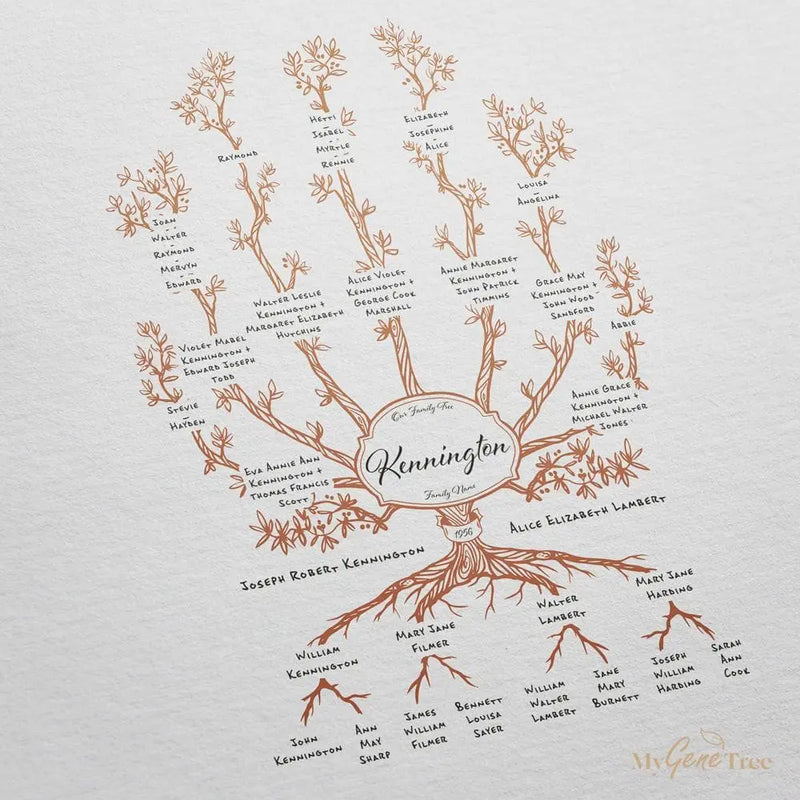 Hetti
Isabel
Myrtle
Rennie
Elizabeth
Josephine
Alice
Raymond
Louisa
Angelina
Joan
Walter
Raymond
Mervyn
Edward
Walter Leslie
Kennington +
Margaret Elizabeth
Hutchins
Alice Violet
Kennington +
George Cook
Marshall
Annie Margaret
Kennington +
John Patrick
Timmins
Grace May
Kennington +
John Wood
Sandford
Abbie
Violet Mabel
Kennington +
Edward Joseph
Todd
Stevie
Hayden
Annie Grace
Kennington +
Michael Walter
Jones
Our Family Tree
Kennington
Family Name
Eva Annie Ann
Kennington +
Thomas Francis
Scott
1956
Joseph Robert Kennington
Alice Elizabeth Lambert
William
Kennington
Mary Jane
Filmer
Walter
Lambert
Mary Jane
Harding
John
Kennington
Ann
May
Sharp
James
William
Filmer
Bennett
Louisa
Sayer
William
Walter
Lambert
Jane
Mary
Burnett
Joseph
William
Harding
Sarah
Ann
Cook
MyGeneTree